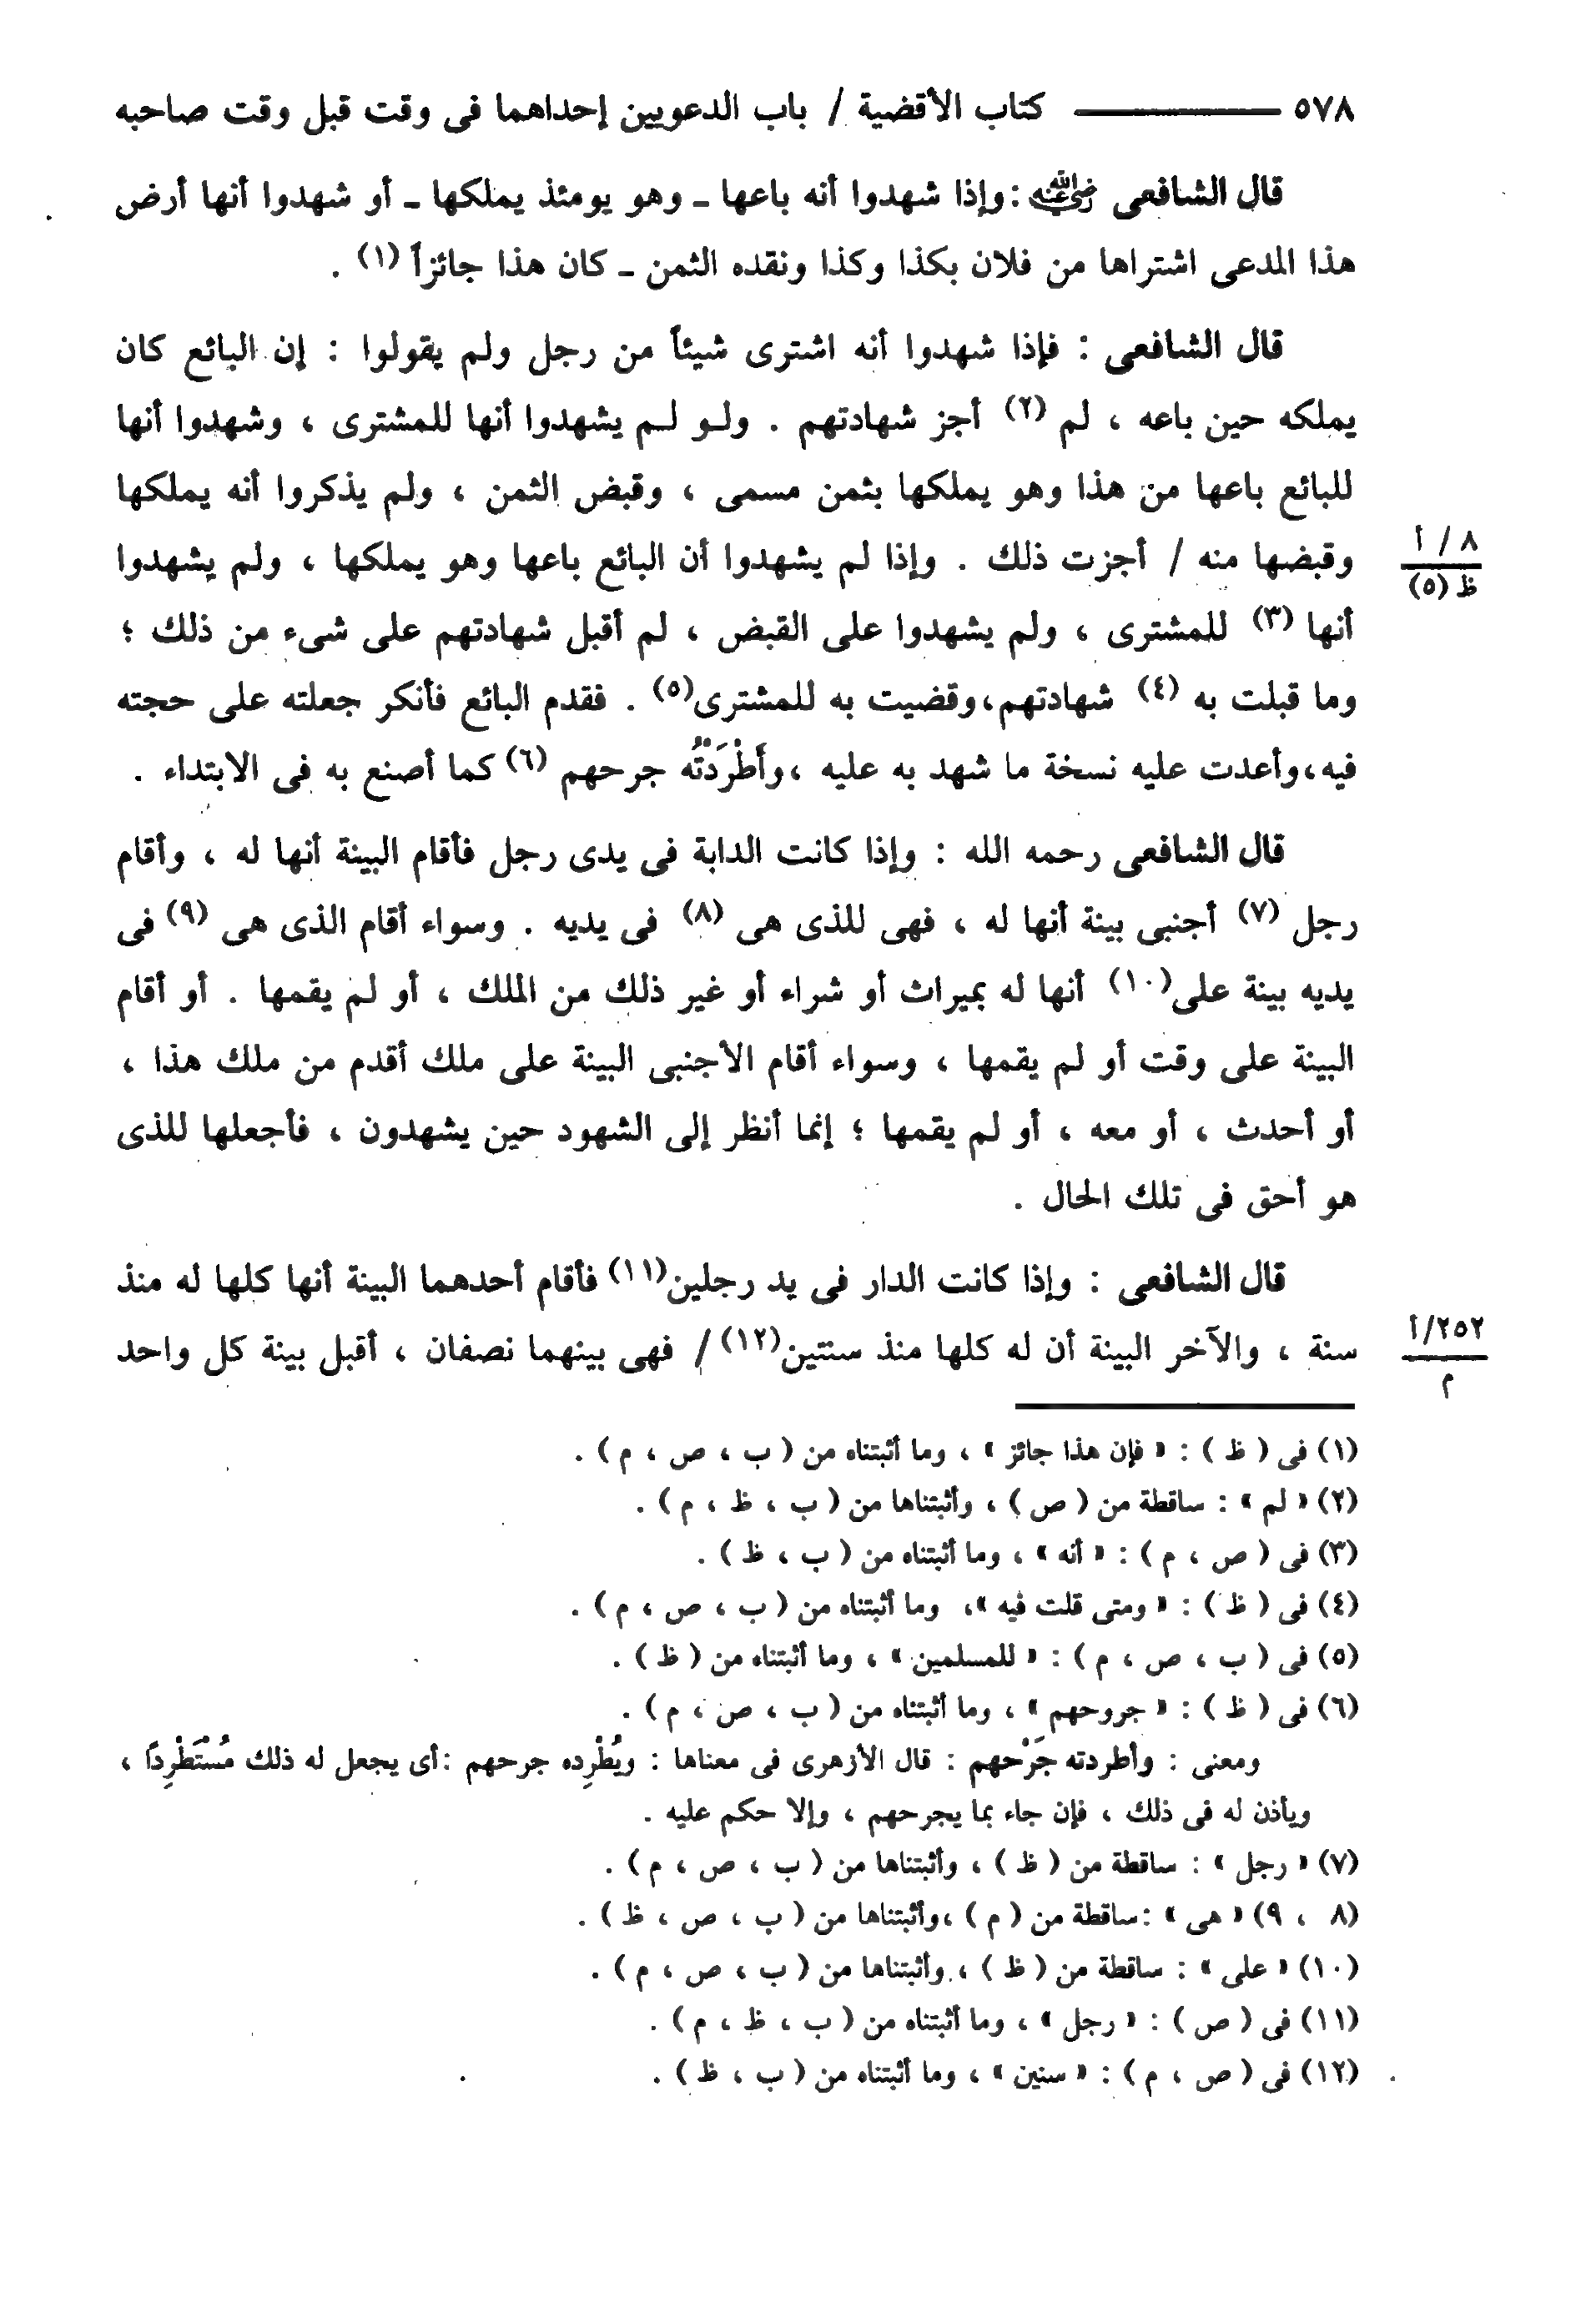 ٥٧٨ ــــــــــ كتاب الأقضية / باب الدعويين إحداهما فى وقت قبل وقت صاحبه
قال الشافعى رضي الله عنه : وإذا شهدوا أنه باعها ـ وهو يومئذ يملكها ـ أو شهدوا أنها أرض
هذا المدعى اشتراها من فلان بكذا وكذا ونقده الثمن ـ كان هذا جائزاً (١) .
قال الشافعى : فإذا شهدوا أنه اشترى شيئاً من رجل ولم يقولوا : إن البائع كان
يملكه حين باعه ، لم (٢) أجز شهادتهم . ولو لم يشهدوا أنها للمشترى ، وشهدوا أنها
للبائع باعها من هذا وهو يملكها بثمن مسمى ، وقبض الثمن ، ولم يذكروا أنه يملكها
وقبضها منه / أجزت ذلك . وإذا لم يشهدوا أن البائع باعها وهو يملكها ، ولم يشهدوا
٨ / أ
ظ (٥)
أنها (٣) للمشترى ، ولم يشهدوا على القبض ، لم أقبل شهادتهم على شىء من ذلك ؛
وما قبلت به (٤) شهادتهم، وقضيت به للمشترى(٥) . فقدم البائع فأنكر جعلته على حجته
فيه، وأعدت عليه نسخة ما شهد به عليه ، وأَطْرَدْتُه جرحهم (٦) كما أصنع به فى الابتداء .
قال الشافعى رحمه الله : وإذا كانت الدابة فى يدى رجل فأقام البينة أنها له ، وأقام
رجل (٧) أجنبى بينة أنها له ، فهى للذى هى (٨) فى يديه . وسواء أقام الذى هى (٩) فى
يديه بينة على(١٠) أنها له بميراث أو شراء أو غير ذلك من الملك ، أو لم يقمها . أو أقام
البينة على وقت أو لم يقمها ، وسواء أقام الأجنبى البينة على ملك أقدم من ملك هذا ،
أو أحدث ، أو معه ، أو لم يقمها ؛ إنما أنظر إلى الشهود حين يشهدون ، فأجعلها للذى
هو أحق فى تلك الحال .
قال الشافعى : وإذا كانت الدار فى يد رجلين(١١) فأقام أحدهما البينة أنها كلها له منذ
سنة ، والآخر البينة أن له كلها منذ سنتين(١٢)/ فهى بينهما نصفان ، أقبل بينة كل واحد
٢٥٢/أ
م
(١) فى ( ظ ) : « فإن هذا جائز » ، وما أثبتناه من ( ب ، ص ، م ) .
(٢) « لم » : ساقطة من ( ص ) ، وأثبتناها من ( ب ، ظ ، م ) .
(٣) فى ( ص ، م ) : « أنه » ، وما أثبتناه من ( ب ، ظ ) .
(٤) فى ( ظ ) : « ومتى قلت فيه »، وما أثبتناه من ( ب ، ص ، م ) .
(٥) فى ( ب ، ص ، م ) : « للمسلمين » ، وما أثبتناه من ( ظ ) .
(٦) فى ( ظ ) : « جروحهم » ، وما أثبتناه من ( ب ، ص ، م ) .
ومعنى : وأطردته جَرْحهم : قال الأزهرى فى معناها : ويُطْرِده جرحهم : أى يجعل له ذلك مُسْتَطْرِدًا ،
ويأذن له فى ذلك ، فإن جاء بما يجرحهم ، وإلا حكم عليه .
(٧) « رجل » : ساقطة من ( ظ ) ، وأثبتناها من ( ب ، ص ، م ) .
(٨ ، ٩) « هى » : ساقطة من ( م ) ، وأثبتناها من ( ب ، ص ، ظ ) .
(١٠) « على » : ساقطة من ( ظ ) ، وأثبتناها من ( ب ، ص ، م ) .
(١١) فى ( ص ) : « رجل » ، وما أثبتناه من ( ب ، ظ ، م ) .
(١٢) فى ( ص ، م ) : « سنين » ، وما أثبتناه من ( ب ، ظ ) .